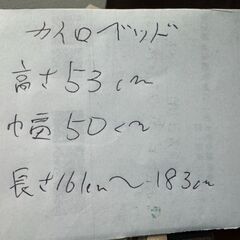 カイロベッド
高さ53cm
巾50cm
長さ161cm〜183cm